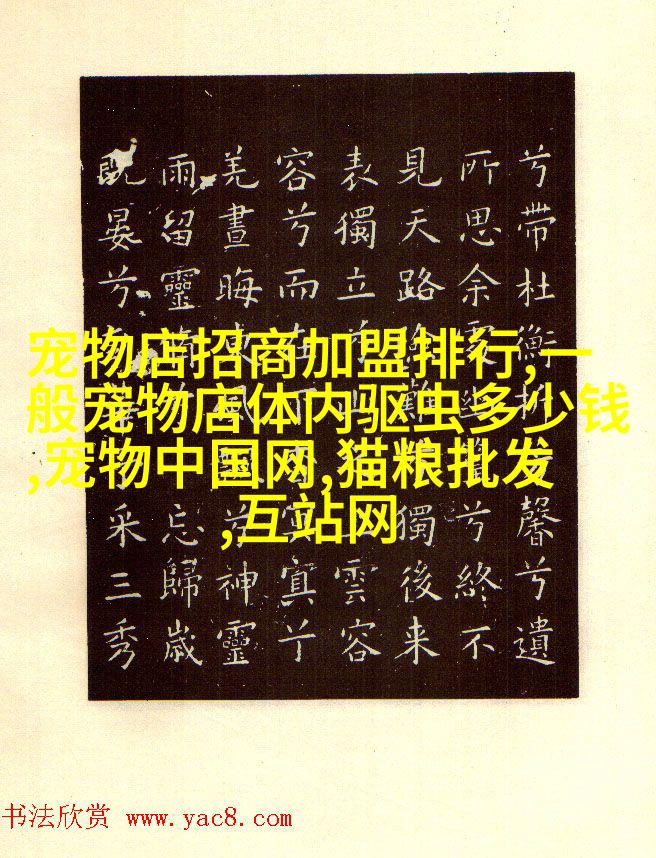 兮帶杜衡折馨兮遺
所思余處幽篁兮終不
見天路險難獨後来
表獨立兮雲容
容兮而在下冥兮
羌晝晦東風兮神靈
雨留靈忘歸歲
既晏兮采三秀
宠物店招商加盟排行,一
般宠物店体内驱虫多少钱
,宠物中国网,猫粮批发
,互站网
书法欣赏 www.yac8.com